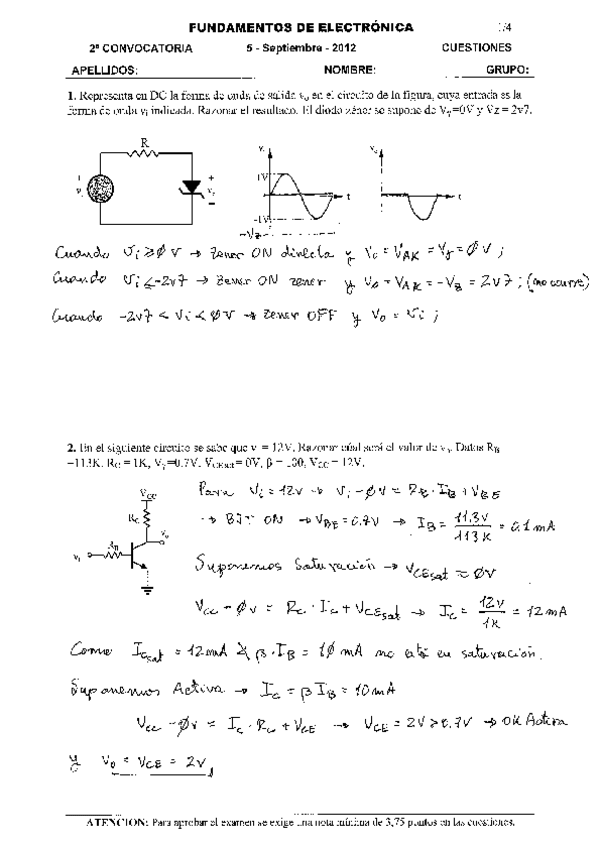 FUNDAMENTOS DE ELECTRÓNICA 1/4
2ª CONVOCATORIA 5 - Septiembre - 2012 CUESTIONES
APELLIDOS: NOMBRE: GRUPO:
1. Representa en DC la forma de onda de salida vo en el circuito de la figura, cuya entrada es la
forma de onda vi indicada. Razonar el resultado. El diodo zéner se supone de Vγ=0V y Vz = 2v7.
R
1V
t
-1V
-Vz
vo
t
Cuando Vi ≥ 0V → Zener ON directa y Vo = VAK = Vγ = 0V ;
Cuando Vi ≤ -2v7 → Zener ON zener y Vo = VAK = -Vz = 2v7 ; (no ocurre)
Cuando -2v7 < Vi < 0V → Zener OFF y Vo = Vi ;
2. En el siguiente circuito se sabe que vi = 12V. Razonar cúal será el valor de vo. Datos RB
=113K, RC = 1K, Vγ=0.7V, VCEsat= 0V, β = 100, VCC = 12V.
VCC
RC
vo
RB
vi
Para Vi = 12v → Vi - 0V = RB · IB + VBE
→ BJT ON → VBE = 0.7V → IB = 11,3V / 113K = 0.1 mA
Suponemos Saturación → VCEsat = 0V
VCC - 0V = RC · IC + VCEsat → IC = 12V / 1K = 12 mA
Como ICsat = 12mA ≮ β · IB = 10 mA no está en saturación.
Suponemos Activa → IC = β IB = 10 mA
VCC - 0V = IC · RC + VCE → VCE = 2V > 0.7V → OK Activa
y Vo = VCE = 2V
ATENCION: Para aprobar el examen se exige una nota mínima de 3,75 puntos en las cuestiones.